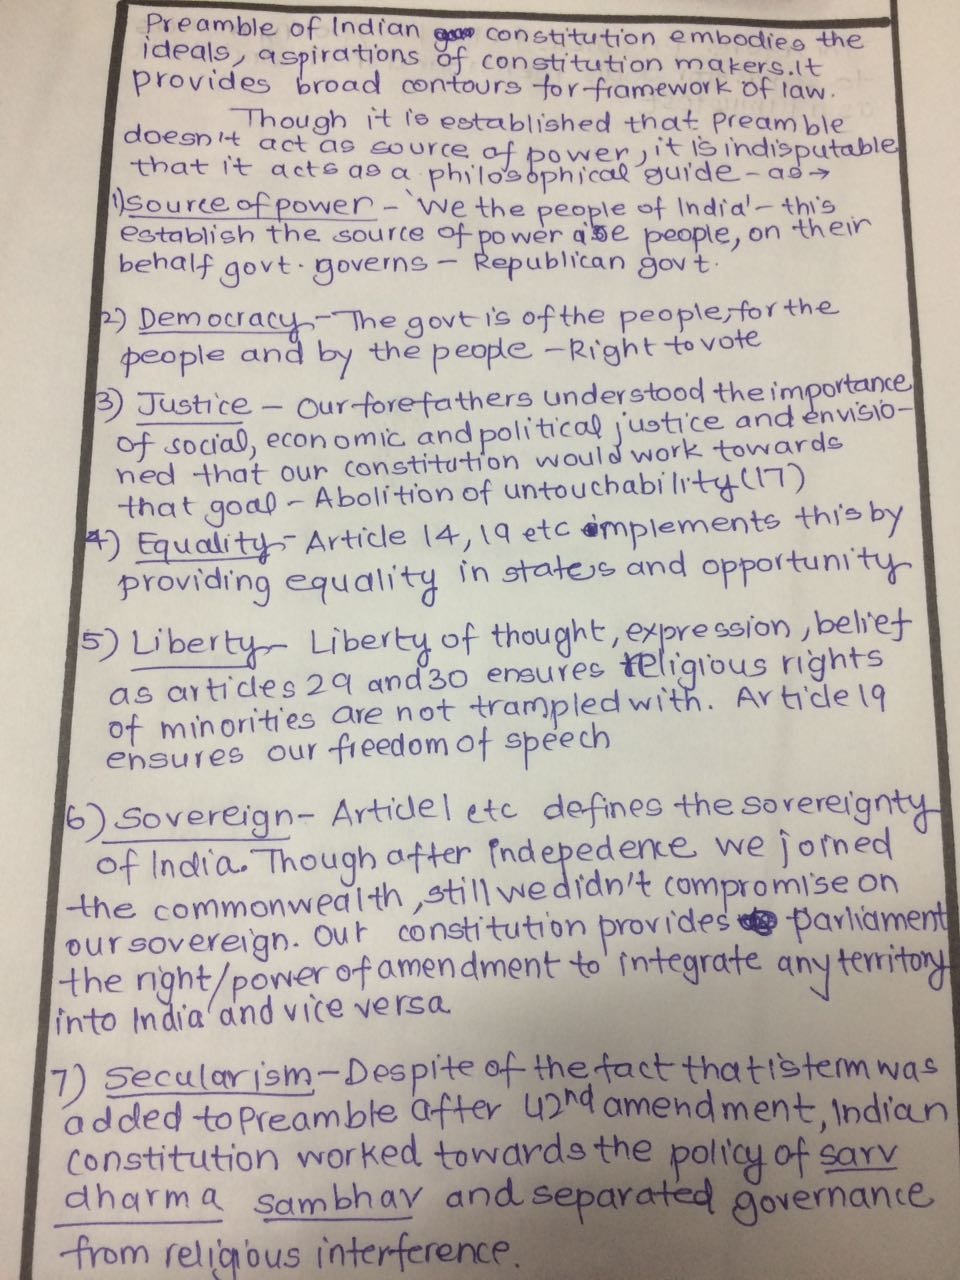 Preamble of Indian constitution embodies the
ideals, aspirations of constitution makers. It
provides broad contours for framework of law.
Though it is established that Preamble
doesn't act as source of power, it is indisputable
that it acts as a philosophical guide - as →
1) Source of power - 'We the people of India' - this
establish the source of power are people, on their
behalf govt. governs - Republican govt.
2) Democracy - The govt is of the people, for the
people and by the people - Right to vote
3) Justice - Our forefathers understood the importance
of social, economic and political justice and envisio-
ned that our constitution would work towards
that goal - Abolition of untouchability (17)
4) Equality - Article 14, 19 etc implements this by
providing equality in states and opportunity
5) Liberty - Liberty of thought, expression, belief
as articles 29 and 30 ensures religious rights
of minorities are not trampled with. Article 19
ensures our freedom of speech
6) Sovereign - Article 1 etc defines the sovereignty
of India. Though after indepedence we joined
the commonwealth, still we didn't compromise on
our sovereign. Our constitution provides parliament
the right/power of amendment to 'integrate any territory
into India' and vice versa
7) Secularism - Despite of the fact that is term was
added to Preamble after 42nd amendment, Indian
constitution worked towards the policy of sarv
dharma sambhav and separated governance
from religious interference.